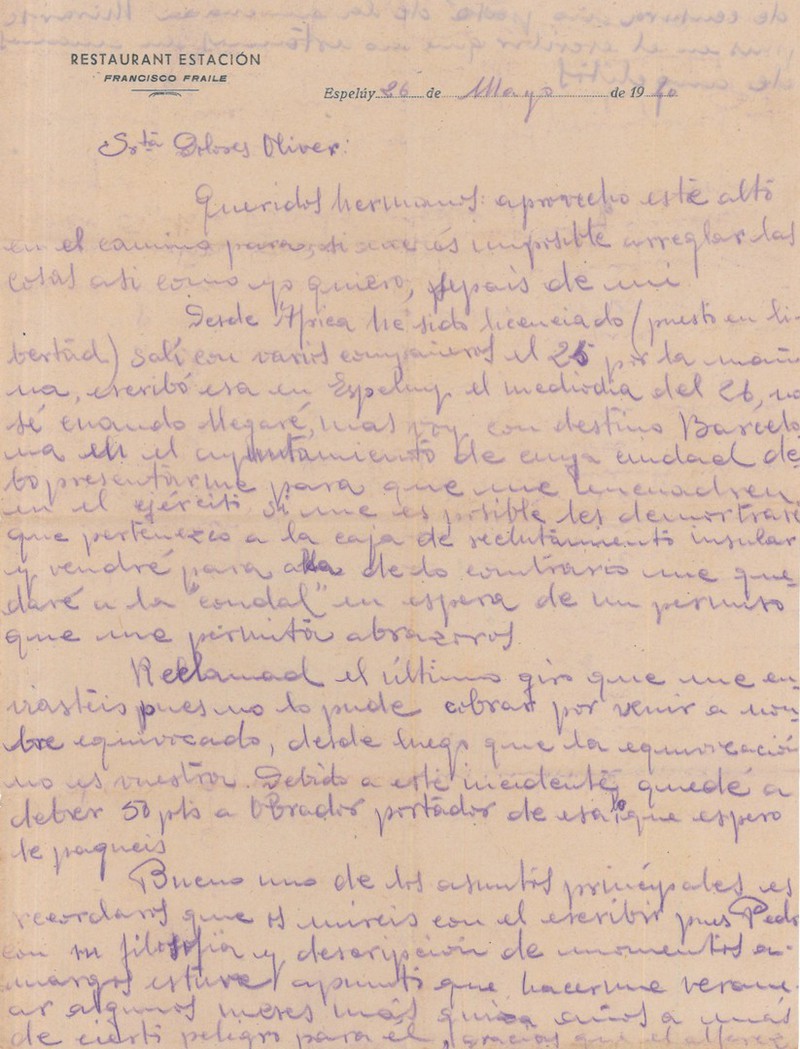 RESTAURANT ESTACIÓN
FRANCISCO FRAILE
Espelúy 26 de Mayo de 1940
Srtª Dolores Oliver:
Queridos hermanos: aprovecho este alto
en el camino para, si me es imposible arreglar las
cosas asi como yo quiero, sepais de mi
Desde Africa he sido licenciado (puesto en li-
bertad) salí con varios compañeros el 25 por la maña
na, escribó esa en Espeluy el mediodia del 26, no
sé cuando llegaré, mas voy con destino Barcelo
na en el ayuntamiento de cuya ciudad de-
bo presentarme para que me encuadren
en el ejército si me es posible les demostrare
que pertenezco a la caja de reclutamiento insular
y vendré para alla de lo contrario me que-
daré a la "condal" en espera de un permiso
que me permita abrazaros
Reclamad el último giro que me en-
viasteis pues no lo pude cobrar por venir a nom-
bre equivocado, desde luego que la equivocación
no es vuestra. Debido a este incidente, quedé a
deber 50 pts a Obrador portador de esa lo que espero
le pagueis
Bueno uno de los asuntos principales es
recordaros que os mireis con el escribir pues Pedro
con su filosofia y descripción de momentos a-
margos estuve apunto que hacerme verane-
ar algunos meses más quiza años a más
de cierto peligro para él, gracias que el alferez